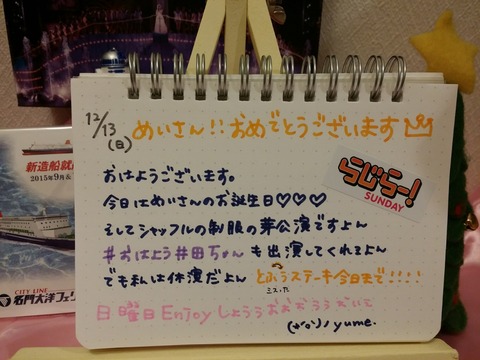 12/13(日)
めいさん!!おめでとうございます
らじらー!
SUNDAY
おはようございます。
今日はめいさんのお誕生日♡♡♡
そしてシャッフルの制服の芽公演ですよん
#おはよう井田ちゃん も出演してくれるよん
でも私は休演だよん とふうステーキ今日まで!!!!
ミスった
日曜日Enjoyしょうぅ
yume.
新造船就
2015年9月&
CITY LINE
名門大洋フェリ